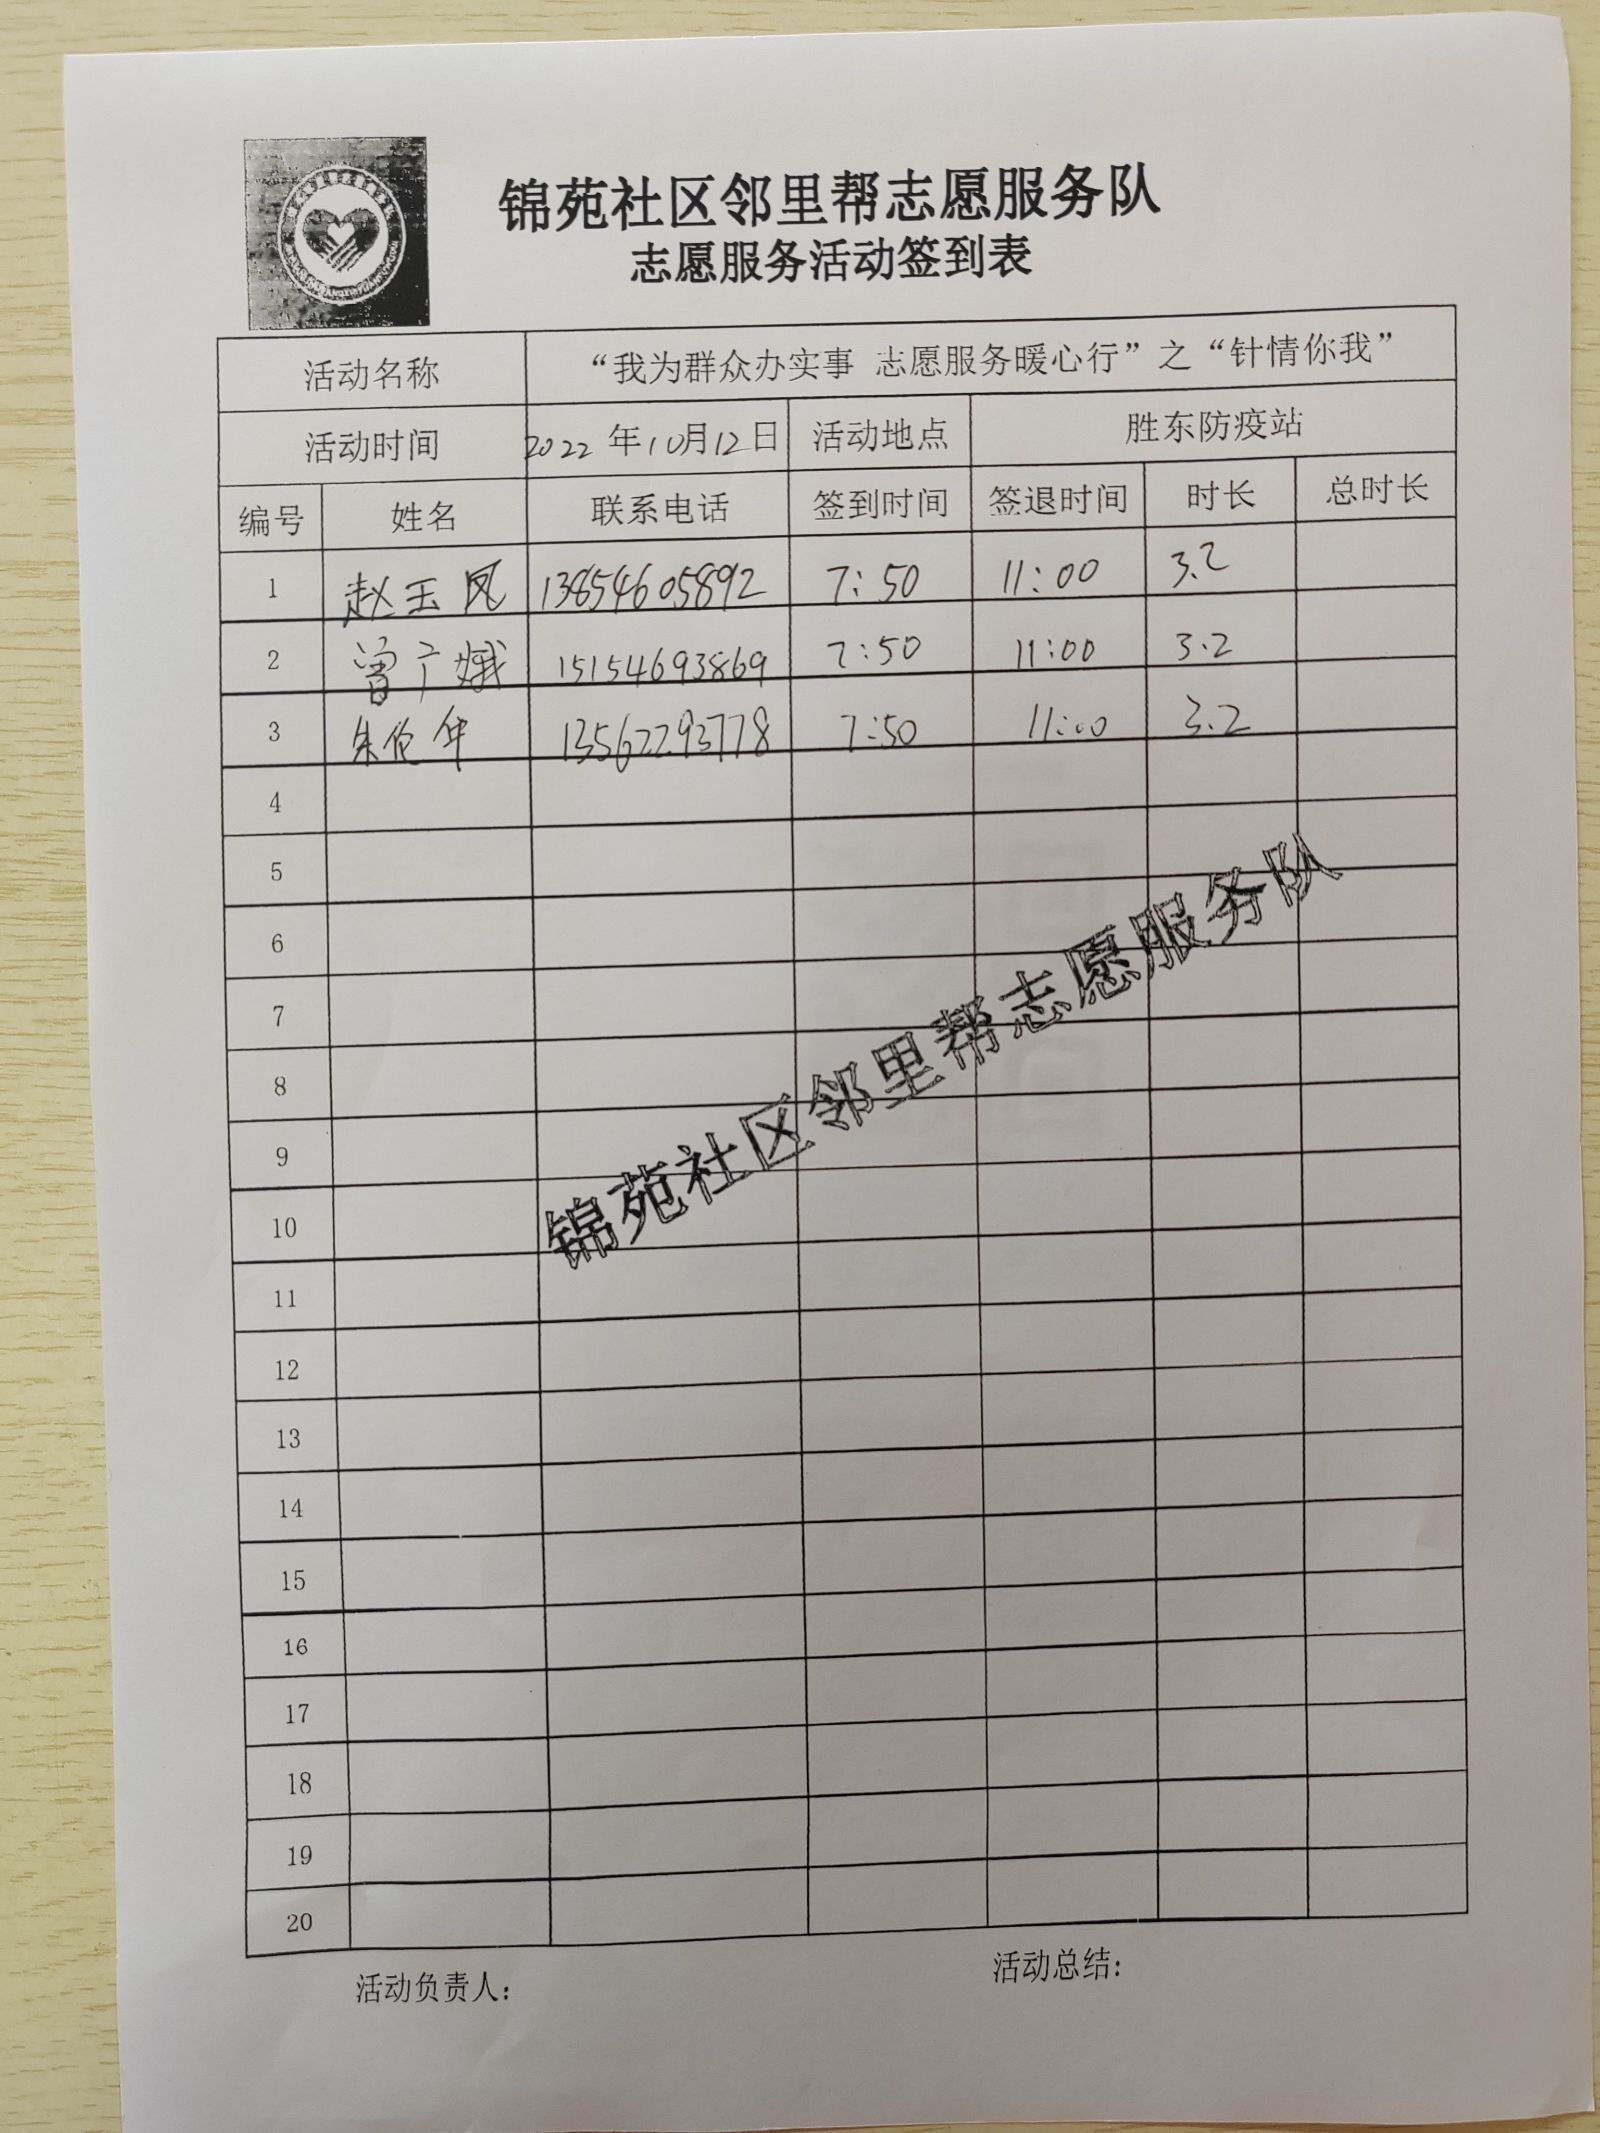 锦苑社区邻里帮志愿服务队
志愿服务活动签到表
活动名称 “我为群众办实事 志愿服务暖心行”之“针情你我”
活动时间 2022年10月12日 活动地点 胜东防疫站
编号 姓名 联系电话 签到时间 签退时间 时长 总时长
1 赵玉凤 13854605892 7:50 11:00 3.2
2 曾广娥 15154693869 7:50 11:00 3.2
3 朱伦华 13562293778 7:50 11:00 3.2
4
5
6
7
8
9
10
11
12
13
14
15
16
17
18
19
20
锦苑社区邻里帮志愿服务队
活动负责人: 活动总结: